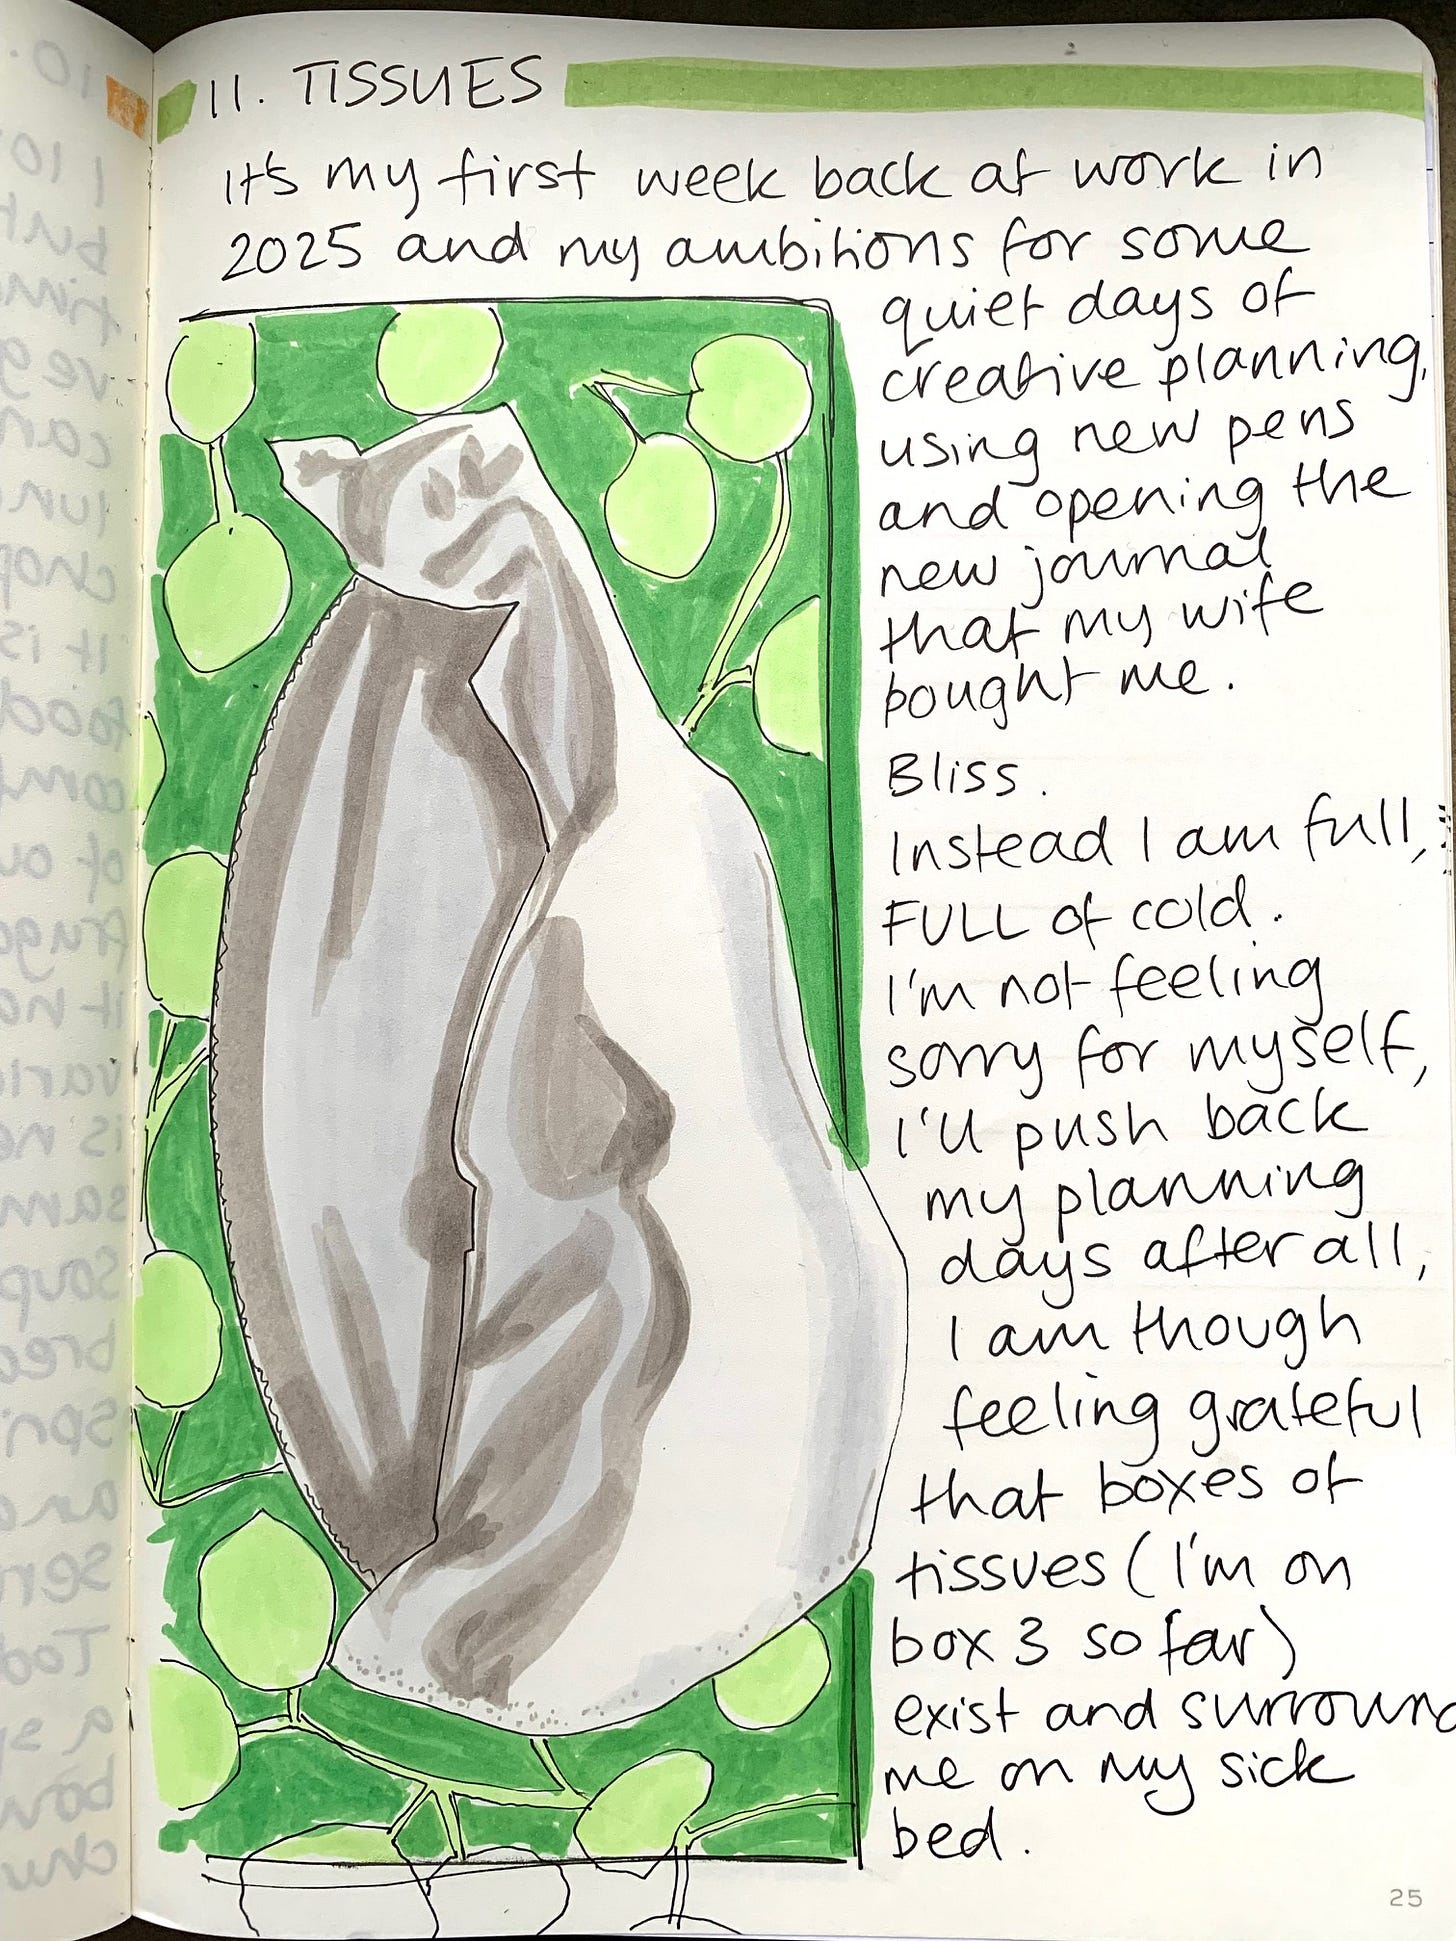 11. TISSUES
It's my first week back at work in
2025 and my ambitions for some
quiet days of
creative planning,
using new pens
and opening the
new journal
that my wife
bought me.
Bliss.
Instead I am full,
FULL of cold.
I'm not feeling
sorry for myself,
I'll push back
my planning
days after all,
I am though
feeling grateful
that boxes of
tissues (I'm on
box 3 so far)
exist and surround
me on my sick
bed.
25